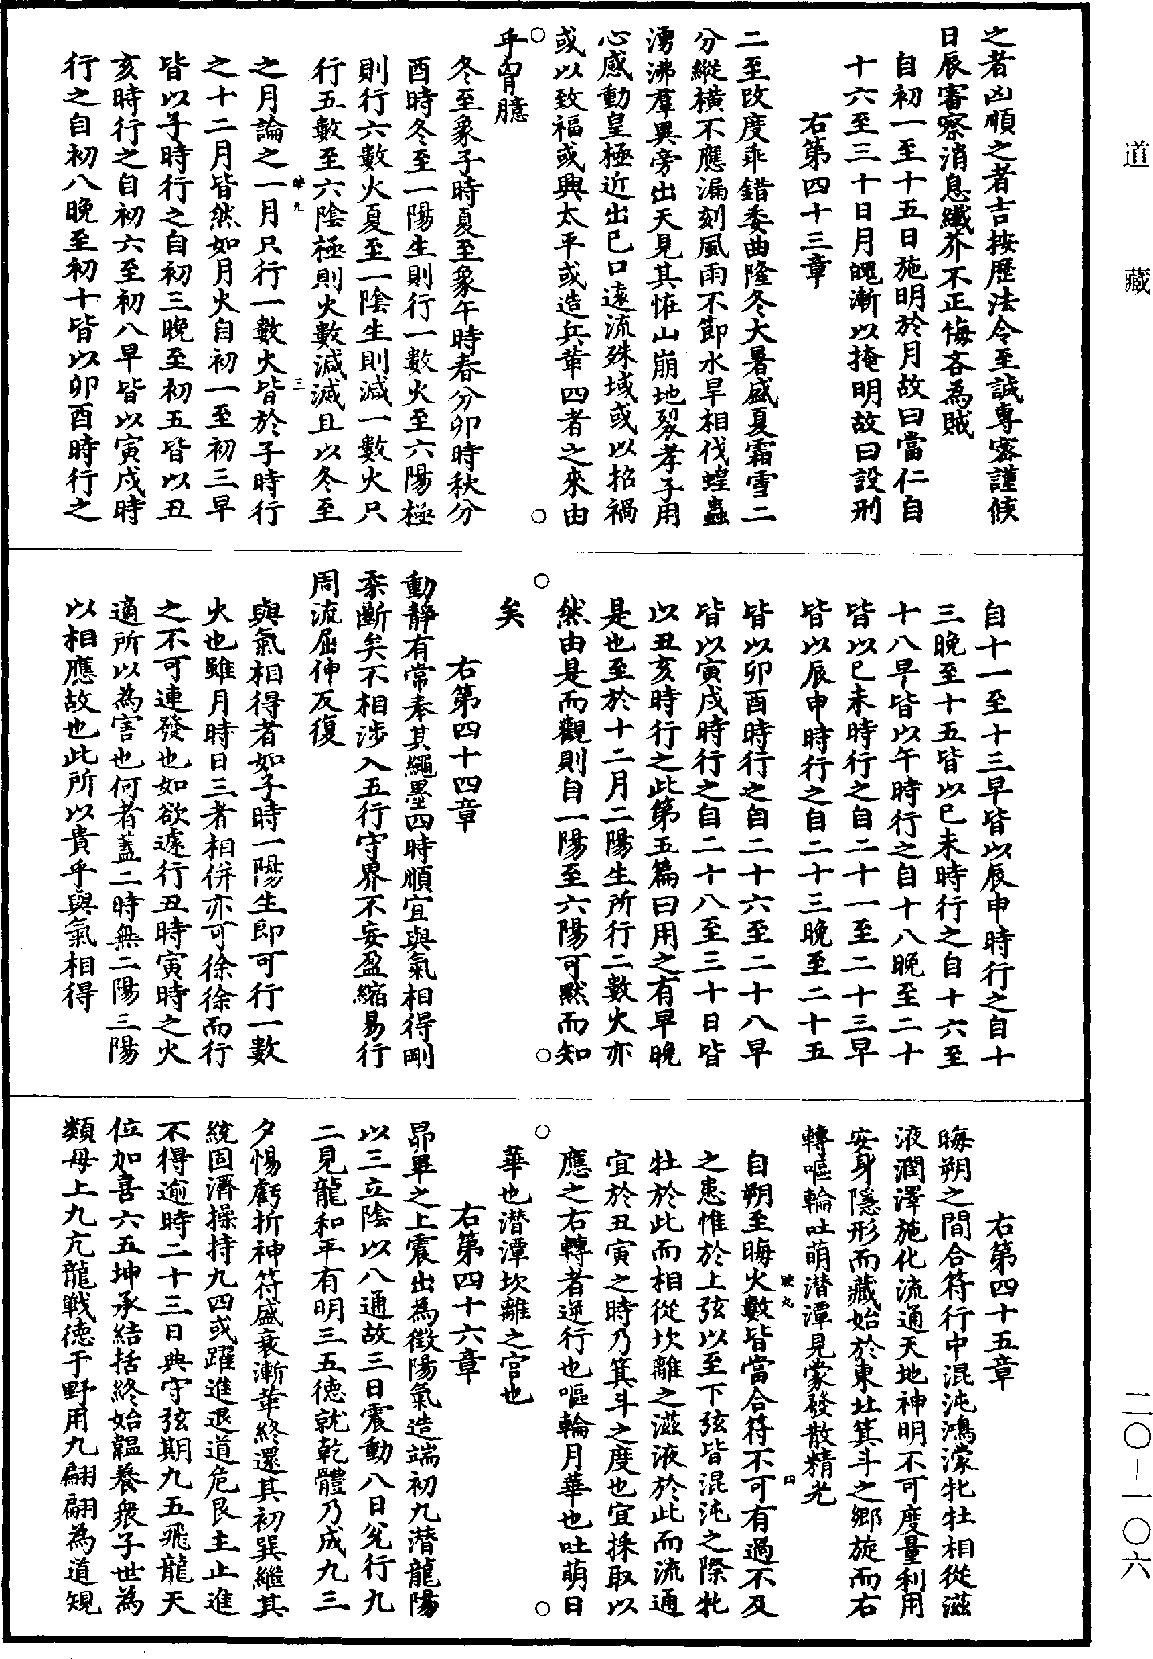 道藏
之者凶順之者吉按歷法令至誠專密謹候
日辰審察消息纖芥不正悔吝為賊
自初一至十五日施明於月故曰當仁自
十六至三十日月魄漸以掩明故曰設刑
右第四十三章
二至改度乖錯委曲隆冬大暑盛夏霜雪二
分縱橫不應漏刻風雨不節水旱相伐蝗蟲
湧沸羣異旁出天見其恠山崩地裂孝子用
心感動皇極近出己口遠流殊域或以招禍
或以致福或興太平或造兵革四者之來由
乎胷臆
冬至象子時夏至象午時春分卯時秋分
酉時冬至一陽生則行一數火至六陽極
則行六數火夏至一陰生則減一數火只
行五數至六陰極則火數減滅且以冬至
之月論之一月只行一數火皆於子時行
之十二月皆然如月火自初一至初三早
皆以子時行之自初三晚至初五皆以丑
亥時行之自初六至初八早皆以寅戌時
行之自初八晚至初十皆以卯酉時行之
自十一至十三早皆以辰申時行之自十
三晚至十五皆以巳未時行之自十六至
十八早皆以午時行之自十八晚至二十
皆以巳未時行之自二十一至二十三早
皆以辰申時行之自二十三晚至二十五
皆以卯酉時行之自二十六至二十八早
皆以寅戌時行之自二十八至三十日皆
以丑亥時行之此第五篇曰用之有早晚
是也至於十二月二陽生所行二數火亦
然由是而觀則自一陽至六陽可默而知
矣
右第四十四章
動靜有常奉其繩墨四時順宜與氣相得剛
柔斷矣不相涉入五行守界不妄盈縮易行
周流屈伸反復
與氣相得者如子時一陽生即可行一數
火也雖月時日三者相併亦可徐徐而行
之不可連發也如欲遽行丑時寅時之火
適所以為害也何者蓋二時無二陽三陽
以相應故也此所以貴乎與氣相得
右第四十五章
晦朔之間合符行中混沌鴻濛牝牡相從滋
液潤澤施化流通天地神明不可度量利用
安身隱形而藏始於東北箕斗之鄉旋而右
轉嘔輪吐萌潛潭見蒙發散精光
自朔至晦火數皆當合符不可有過不及
之患惟於上弦以至下弦皆混沌之際牝
牡於此而相從坎離之滋液於此而流通
宜於丑寅之時乃箕斗之度也宜採取以
應之右轉者逆行也嘔輪月華也吐萌日
華也潛潭坎離之宮也
右第四十六章
昴畢之上震出為徵陽氣造端初九潛龍陽
以三立陰以八通故三日震動八日兌行九
二見龍和平有明三五德就乾體乃成九三
夕惕虧折神符盛衰漸革終還其初巽繼其
統固濟操持九四或躍進退道危艮主止進
不得逾時二十三日典守弦期九五飛龍天
位加喜六五坤承結括終始韞養衆子世為
類母上九亢龍戰德于野用九翩翩為道規
二〇-一〇六